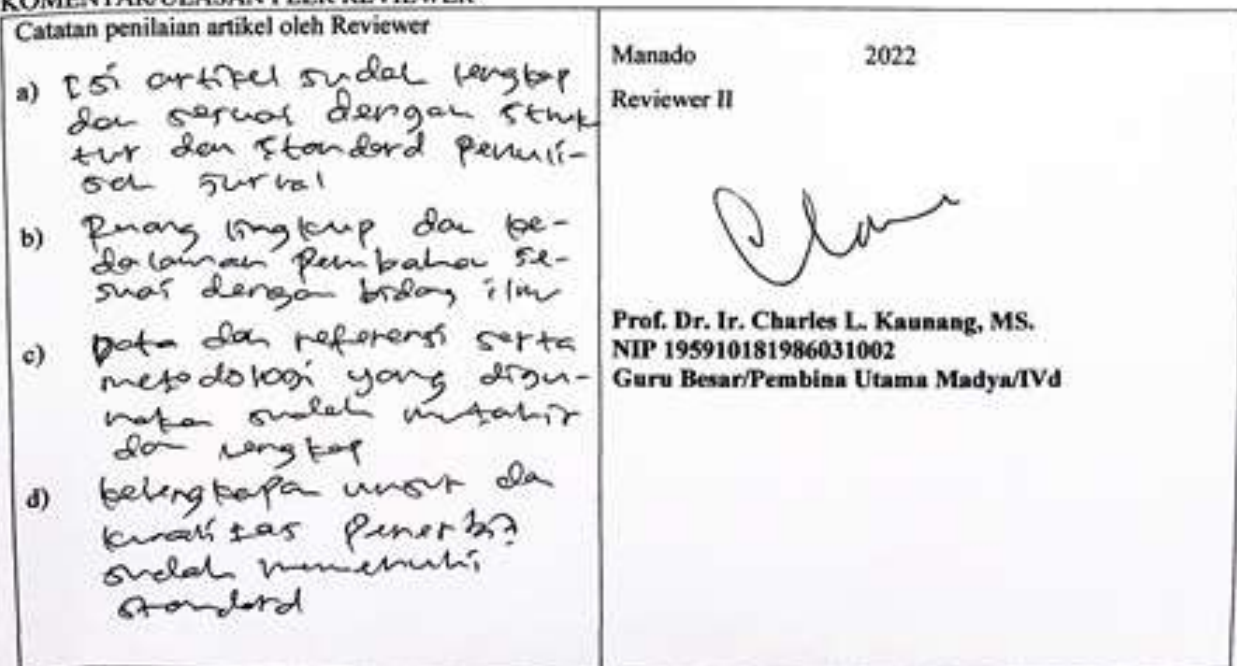 KOMENTAR/ULASAN PEER REVIEWER
Catatan penilaian artikel oleh Reviewer
a) Isi artikel sudah lengkap
dan sesuai dengan struk
tur dan standard penuli-
san jurnal
b) Ruang lingkup dan ke-
dalaman pembahasan se-
suai dengan bidang ilmu
c) Data dan referensi serta
metodologi yang digu-
nakan sudah mutahir
dan lengkap
d) kelengkapan unsur dan
kualitas penerbit
sudah memenuhi
standard
Manado 2022
Reviewer II
Prof. Dr. Ir. Charles L. Kaunang, MS.
NIP 195910181986031002
Guru Besar/Pembina Utama Madya/IVd